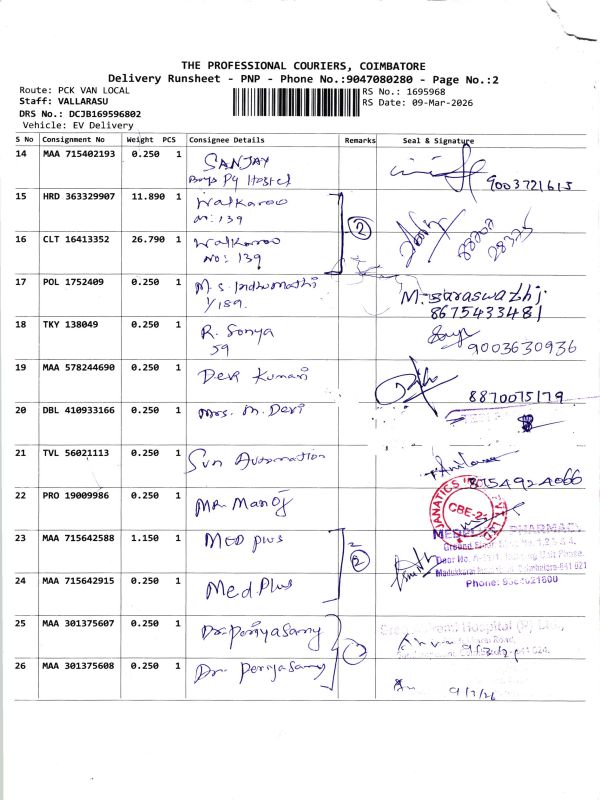 THE PROFESSIONAL COURIERS, COIMBATORE
Delivery Runsheet - PNP - Phone No.:9047080280 - Page No.:2
Route: PCK VAN LOCAL
RS No.: 1695968
Staff: VALLARASU
RS Date: 09-Mar-2026
DRS No.: DCJB169596802
Vehicle: EV Delivery
S No Consignment No Weight PCS Consignee Details Remarks Seal & Signature
14 MAA 715402193 0.250 1 SANJAY
Boys Pg Hostel 9003721615
15 HRD 363329907 11.890 1 Walkaroo
no: 139
2
16 CLT 16413352 26.790 1 Walkaroo
No: 139
17 POL 1752409 0.250 1 M.S. Indhumathi M. Saraswathi
1/189. 8675433481
18 TKY 138049 0.250 1 R. Sonya
59 9003630936
19 MAA 578244690 0.250 1 Devi Kumari
8870075179
20 DBL 410933166 0.250 1 Mrs. M. Devi
21 TVL 56021113 0.250 1 Sun Automation
8754924066
22 PRO 19009986 0.250 1 Mr. Manoj
CBE-21
23 MAA 715642588 1.150 1 MED plus
2
Phone:
24 MAA 715642915 0.250 1 Med Plus
25 MAA 301375607 0.250 1 Dr. Periyasamy
Hospital (P) Ltd.,
26 MAA 301375608 0.250 1 Dr. Periyasamy